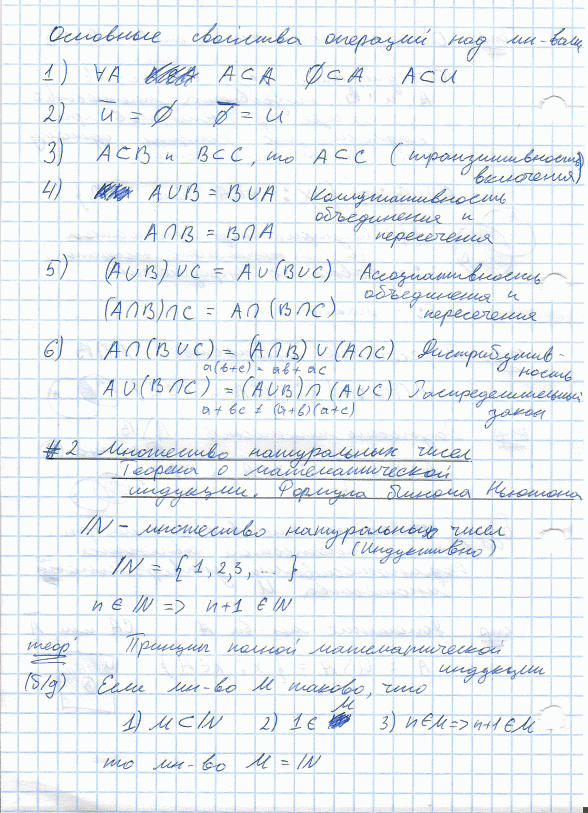 Основные свойства операций над мн-вами
1) ∀A A⊂A ∅⊂A A⊂U
2) U̅ = ∅ ∅̅ = U
3) A⊂B и B⊂C, то A⊂C (транзитивность
включения)
4) A∪B = B∪A Коммутативность
объединения и
A∩B = B∩A пересечения
5) (A∪B)∪C = A∪(B∪C) Ассоциативность
объединения и
(A∩B)∩C = A∩(B∩C) пересечения
6) A∩(B∪C) = (A∩B)∪(A∩C) Дистрибутив-
a(b+c) = ab+ac ность
A∪(B∩C) = (A∪B)∩(A∪C) Распределительный
a+bc ≠ (a+b)(a+c) закон
#2 Множество натуральных чисел
Теорема о математической
индукции. Формула бинома Ньютона
ℕ - множество натуральных чисел
(Индуктивно)
ℕ = {1,2,3, ...}
n ∈ ℕ => n+1 ∈ ℕ
теор Принцип полной математической
индукции
(б/д) Если мн-во M таково, что
1) M⊂ℕ 2) 1∈ M 3) n∈M=>n+1∈M
то мн-во M = ℕ